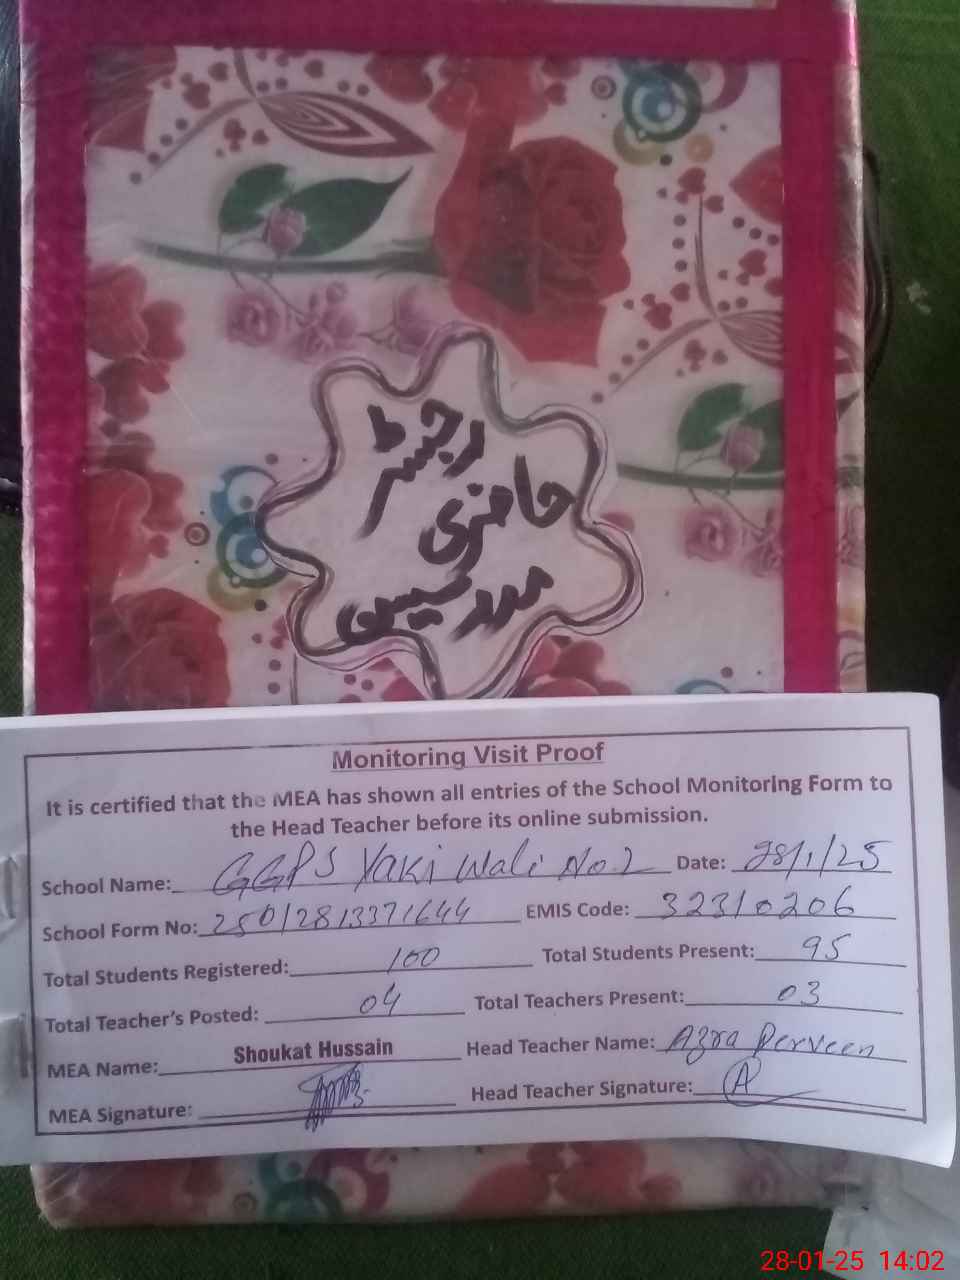 رجسٹر
حاضری
مدرسین
Monitoring Visit Proof
It is certified that the MEA has shown all entries of the School Monitoring Form to
the Head Teacher before its online submission.
School Name: GGPS Yaki Wali No.2 Date: 28/1/25
School Form No: 25012813371644 EMIS Code: 32310206
Total Students Registered: 100 Total Students Present: 95
Total Teacher's Posted: 04 Total Teachers Present: 03
MEA Name: Shoukat Hussain Head Teacher Name: Azra Perveen
MEA Signature: Head Teacher Signature: A
28-01-25 14:02